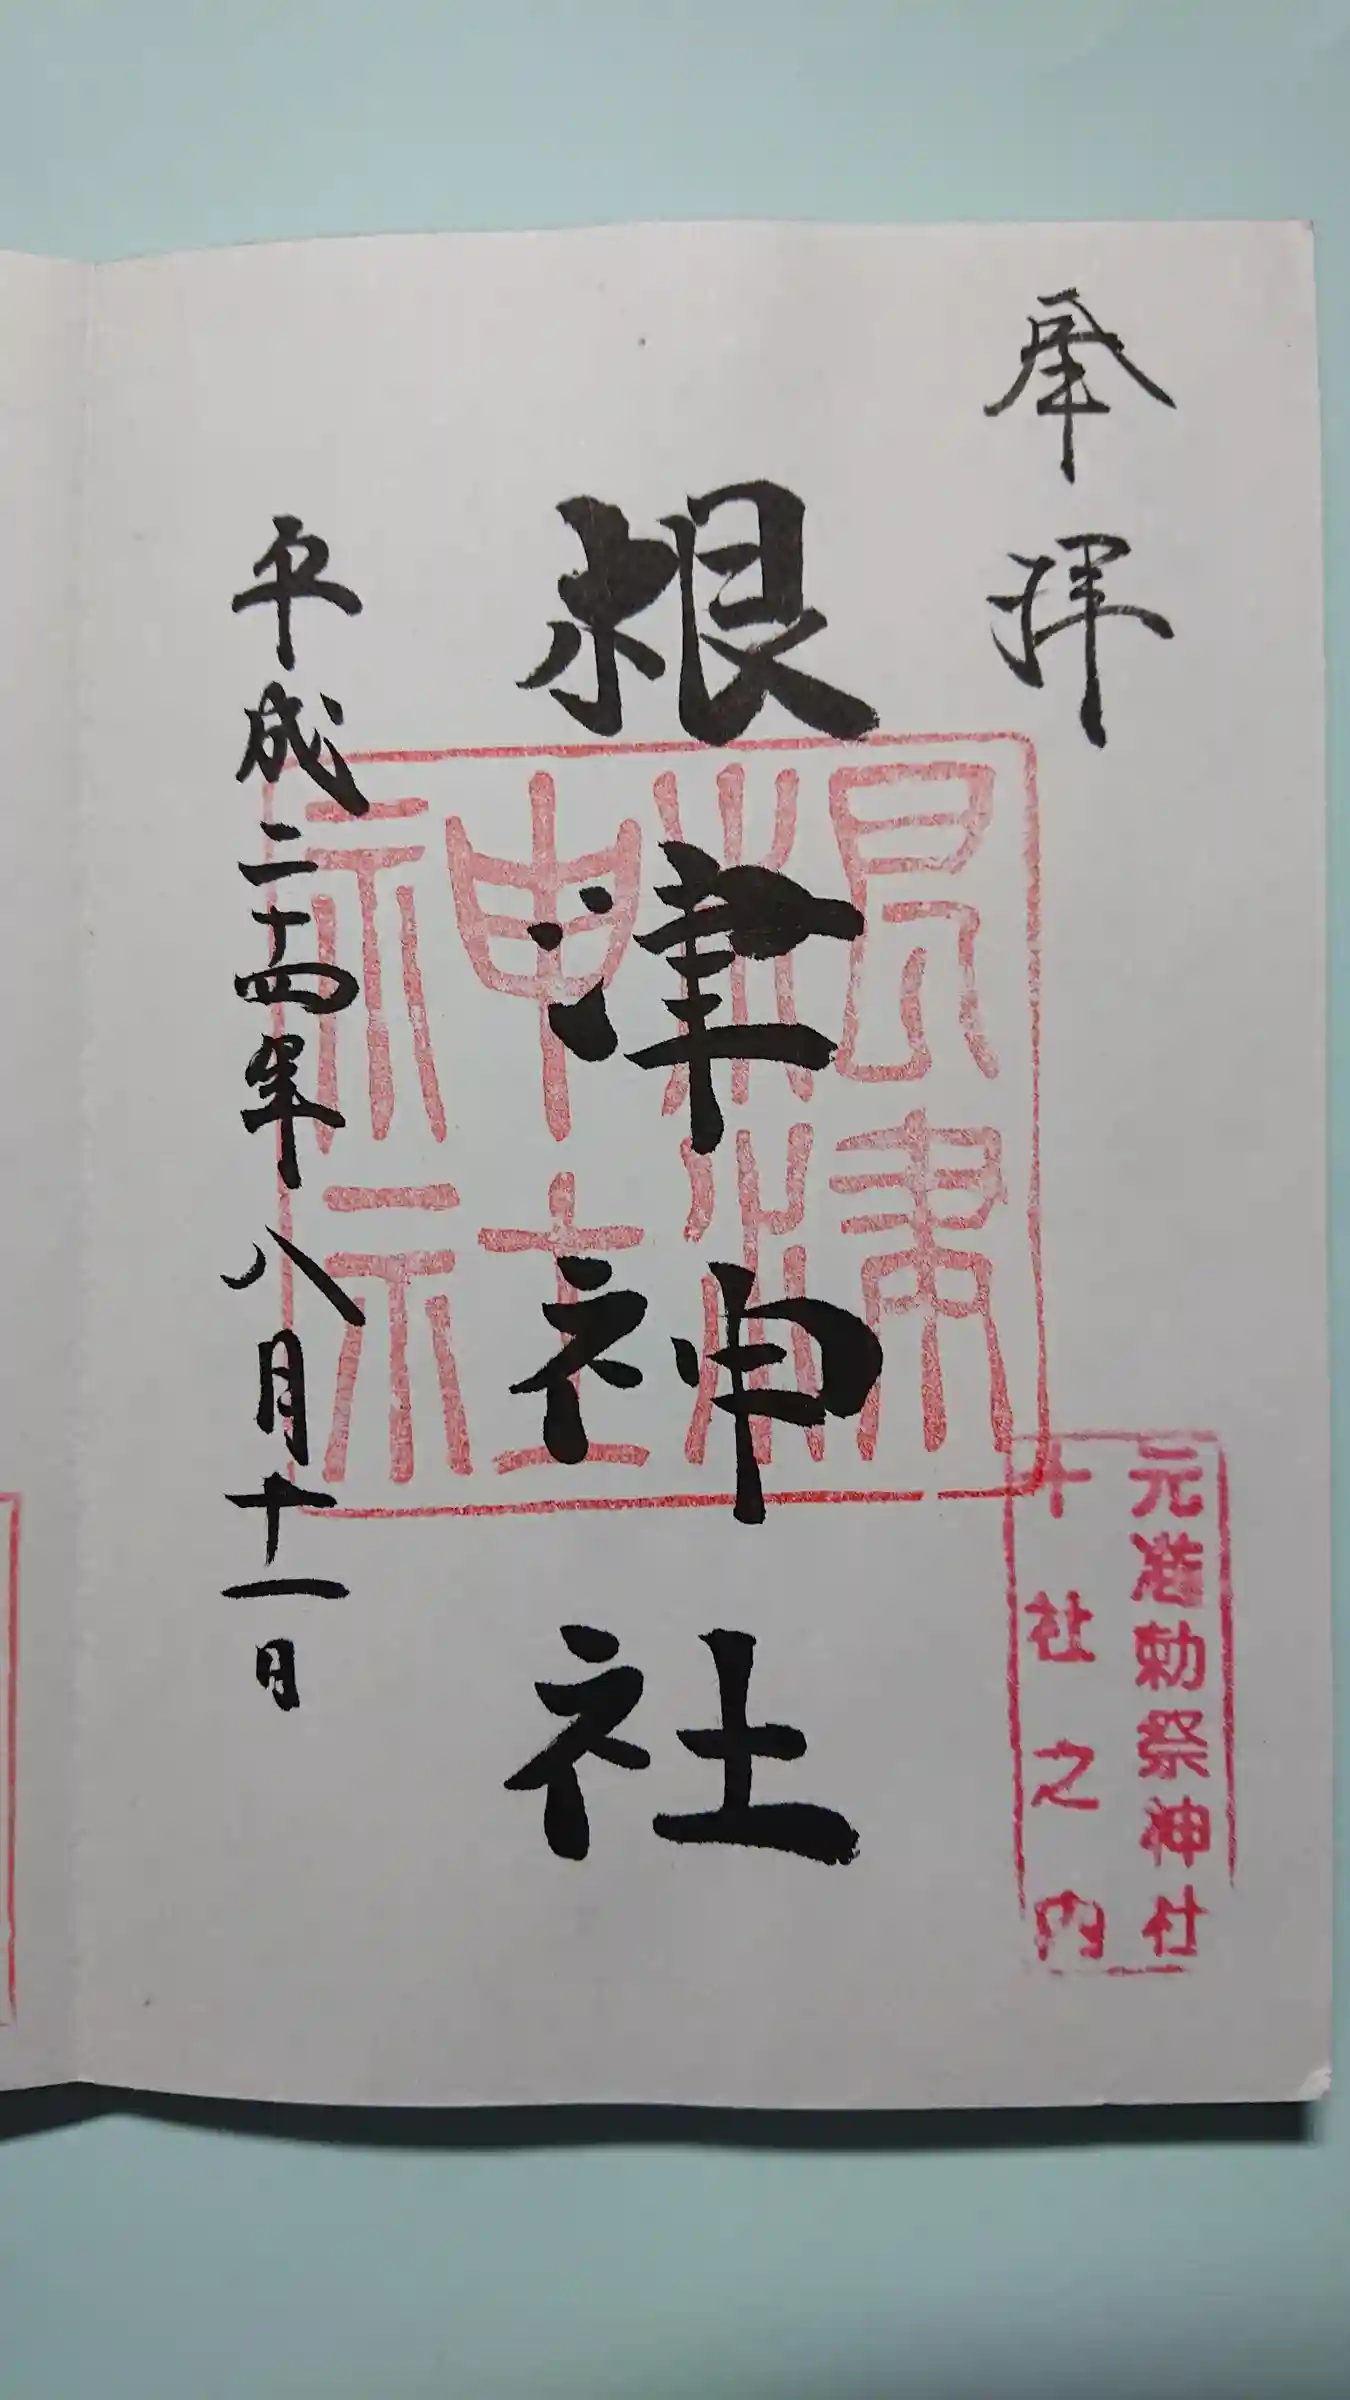 奉拝
元准勅祭神社
十社之内
根津神社
根津神社
平成二十四年八月十一日